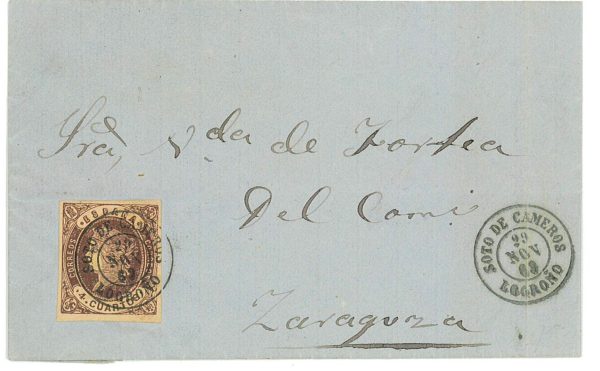 Sra, Vda de Fortea
Del Comº
Zaragoza
ESPAÑA
CORREOS
4 CUARTOS
SOTO DE CAMEROS
29
NOV
63
LOGROÑO
SOTO DE CAMEROS
29
NOV
63
LOGROÑO